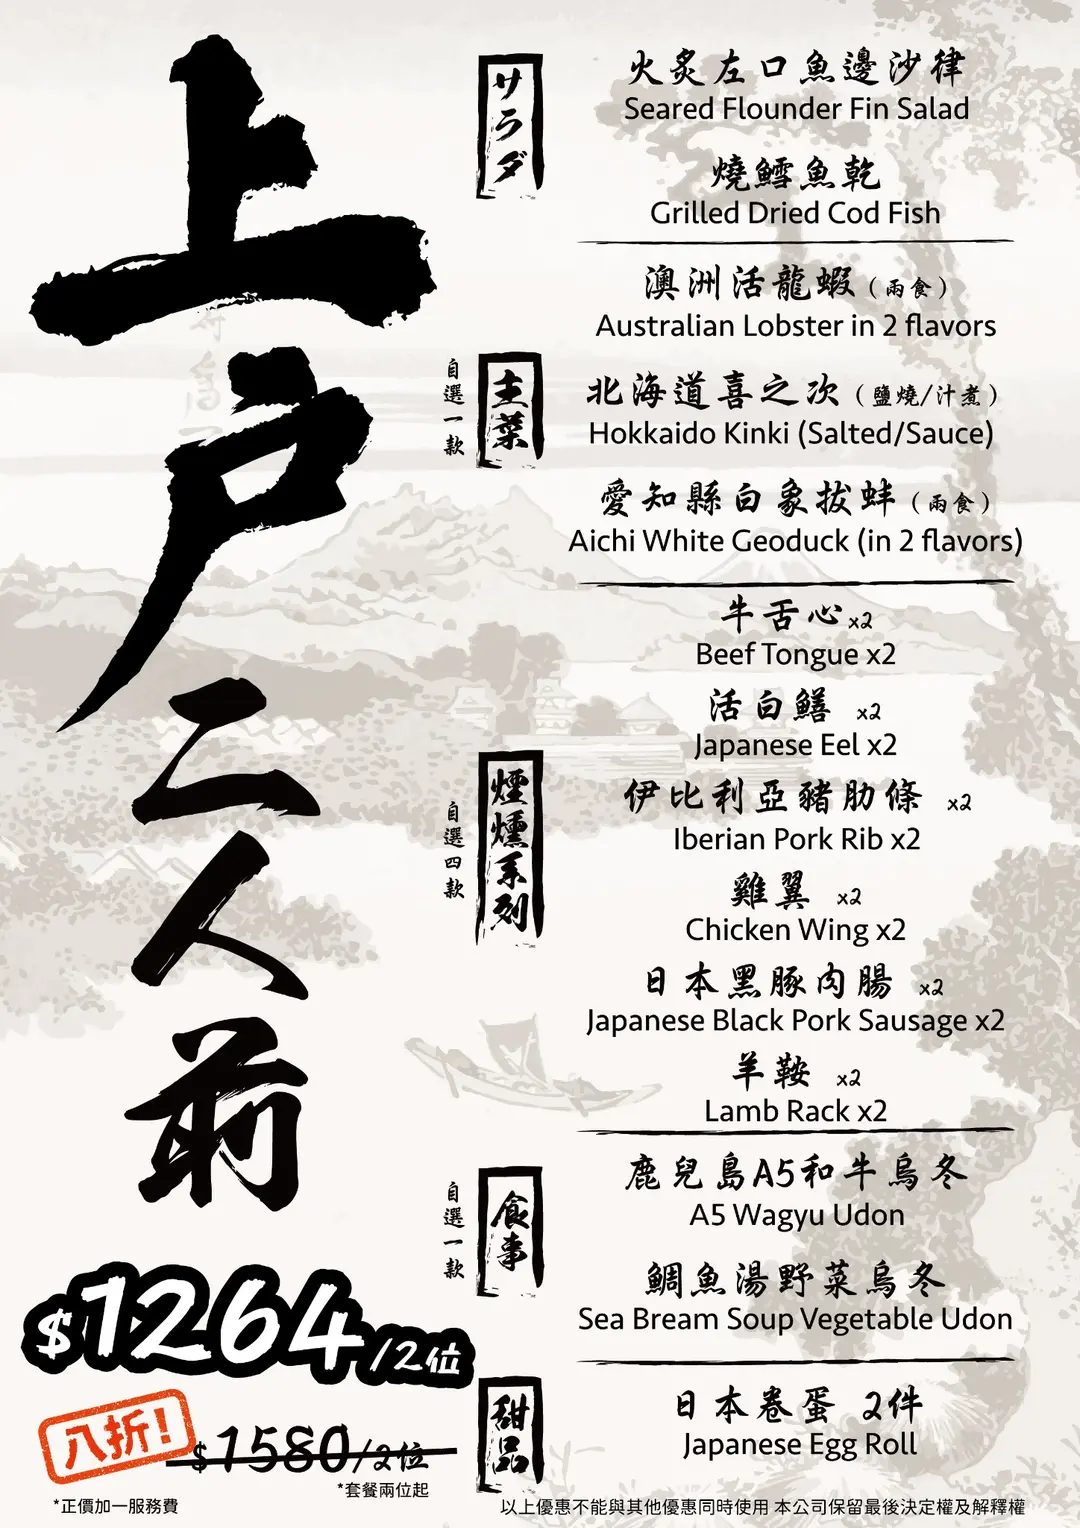 上戶二人前
サラダ
火炙左口魚邊沙律
Seared Flounder Fin Salad
燒鱈魚乾
Grilled Dried Cod Fish
主菜
自選一款
澳洲活龍蝦（兩食）
Australian Lobster in 2 flavors
北海道喜之次（鹽燒/汁煮）
Hokkaido Kinki (Salted/Sauce)
愛知縣白象拔蚌（兩食）
Aichi White Geoduck (in 2 flavors)
煙燻系列
自選四款
牛舌心x2
Beef Tongue x2
活白鱔 x2
Japanese Eel x2
伊比利亞豬肋條 x2
Iberian Pork Rib x2
雞翼 x2
Chicken Wing x2
日本黑豚肉腸 x2
Japanese Black Pork Sausage x2
羊鞍 x2
Lamb Rack x2
食事
自選一款
鹿兒島A5和牛烏冬
A5 Wagyu Udon
鯛魚湯野菜烏冬
Sea Bream Soup Vegetable Udon
甜品
日本卷蛋 2件
Japanese Egg Roll
$1264/2位
八折！
$1580/2位
*套餐兩位起
*正價加一服務費
以上優惠不能與其他優惠同時使用 本公司保留最後決定權及解釋權